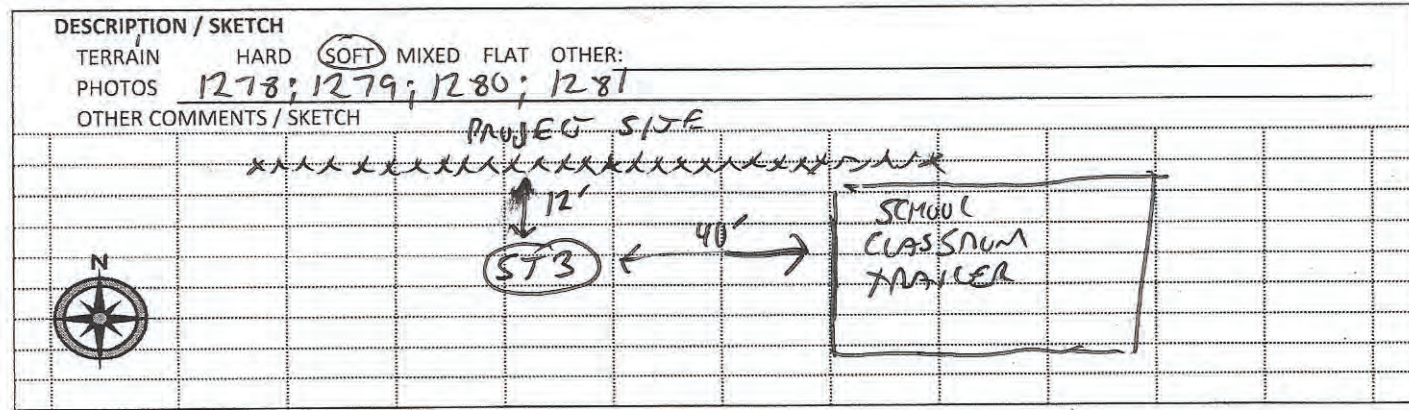 DESCRIPTION / SKETCH
TERRAIN HARD SOFT MIXED FLAT OTHER:
PHOTOS 1278; 1279; 1280; 1281
OTHER COMMENTS / SKETCH
PROJECT SITE
12'
40'
ST3
SCHOOL
CLASSROOM
TRAILER
N